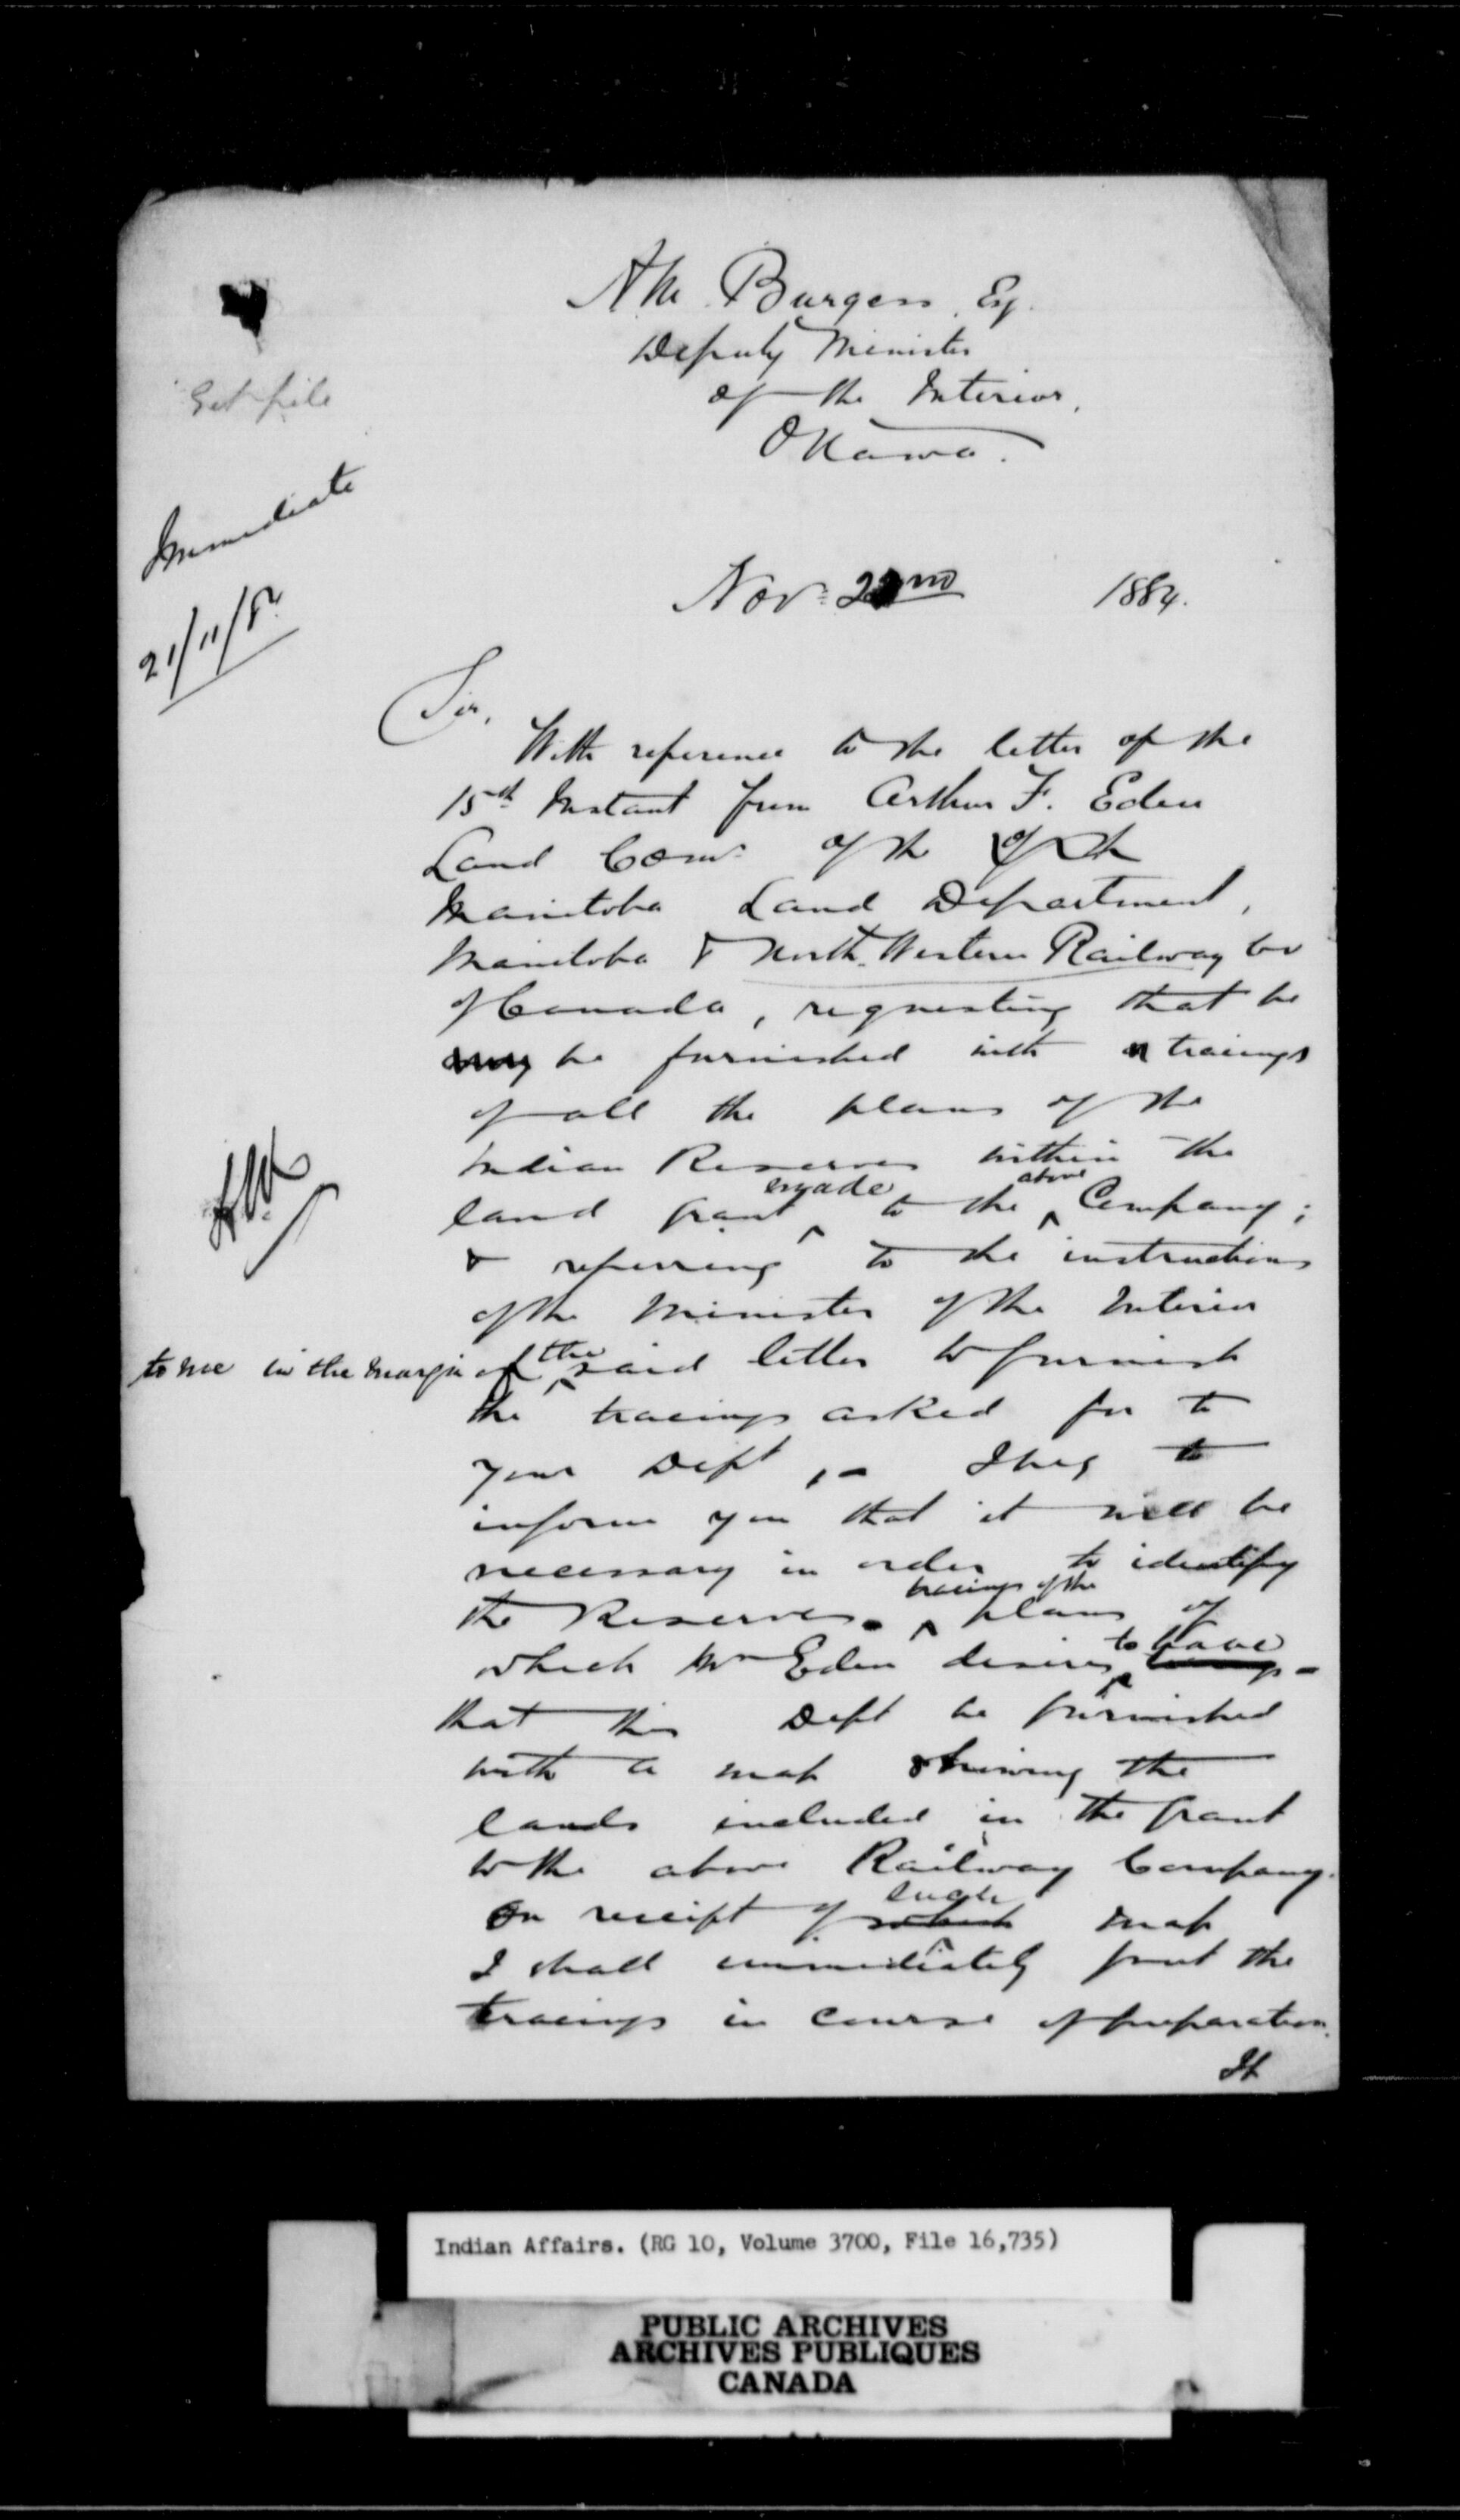 A M Burgess, Esq.
Deputy Minister
of the Interior,
Ottawa.
Get file
Immediate
21/11/8
Nov: 22nd 1884.
Sir,
With reference to the letter of the
15th Instant from Arthur F. Eden
Land Comr. of the of the
Manitoba Land Department,
Manitoba & North Western Railway Co
of Canada, requesting that he
may be furnished with tracings
of all the plans of the
Indian Reserves within the
land grant made to the above Company;
& referring to the instructions
of the Minister of the Interior
to me in the margin of the said letter to furnish
the tracings asked for to
your Dept, - I beg to
inform you that it will be
necessary in order to identify
the Reserves tracings of the plans of
which Mr Eden desires to have -
that this Dept be furnished
with a map showing the
lands included in the grant
to the above Railway Company.
On receipt of such map
I shall immediately put the
tracings in course of preparation.
It
Indian Affairs. (RG 10, Volume 3700, File 16,735)
PUBLIC ARCHIVES
ARCHIVES PUBLIQUES
CANADA